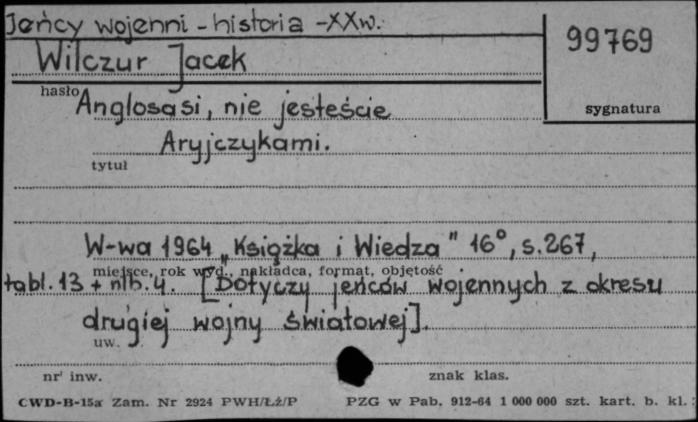 Jeńcy wojenni - historia - XXw.
Wilczur Jacek
99769
hasło
sygnatura
Anglosasi, nie jesteście
Aryjczykami.
tytuł
W-wa 1964 „Książka i Wiedza" 16°, s.267,
miejsce, rok wyd., nakładca, format, objętość
tabl. 13 + nlb. 4. [Dotyczy jeńców wojennych z okresu
drugiej wojny światowej].
uw.
nr inw.
znak klas.
CWD-B-15a Zam. Nr 2924 PWH/Łż/P PZG w Pab. 912-64 1 000 000 szt. kart. b. kl.